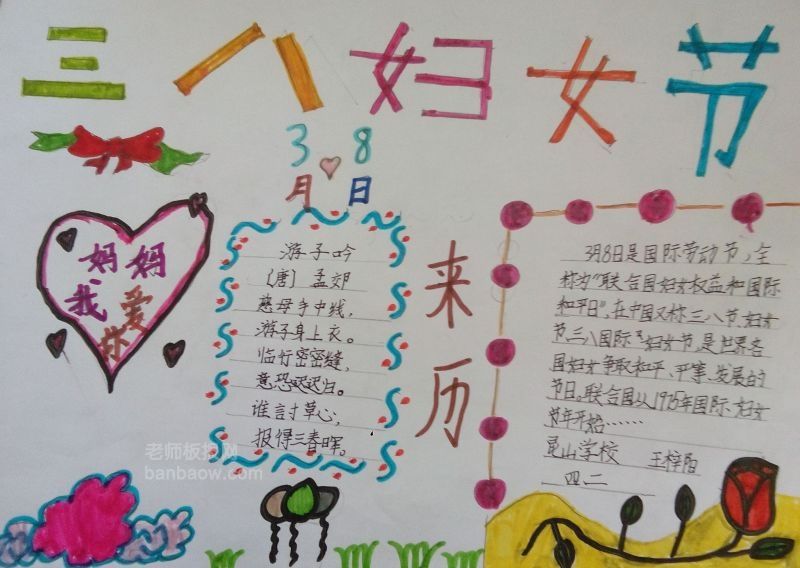 三八妇女节
3月8日
妈妈
我爱你
游子吟
〔唐〕孟郊
慈母手中线，
游子身上衣。
临行密密缝，
意恐迟迟归。
谁言寸草心，
报得三春晖。
来历
3月8日是国际劳动节，全
称为“联合国妇女权益和国际
和平日”，在中国又称三八节、妇女
节、三八国际妇女节，是世界各
国妇女争取和平、平等、发展的
节日。联合国从1975年国际妇女
年开始……
昆山学校 王梓阳
四、二
老师板报网
banbaow.com